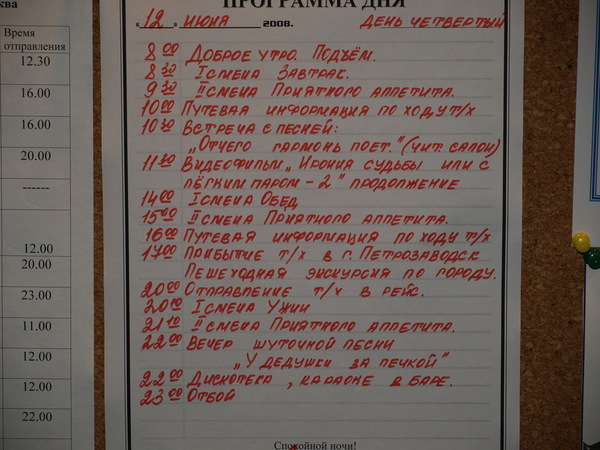 ква
Время
отправления
12.30
16.00
16.00
20.00
------
12.00
20.00
23.00
11.00
12.00
12.00
22.00
ПРОГРАММА ДНЯ
"12" ИЮНЯ 2008. ДЕНЬ ЧЕТВЕРТЫЙ
8 00 ДОБРОЕ УТРО. ПОДЪЁМ.
8 30 I СМЕНА ЗАВТРАК.
9 30 II СМЕНА ПРИЯТНОГО АППЕТИТА.
10 00 ПУТЕВАЯ ИНФОРМАЦИЯ ПО ХОДУ Т/Х
10 30 ВСТРЕЧА С ПЕСНЕЙ:
„ОТЧЕГО ГАРМОНЬ ПОЕТ." (ЧИТ. САЛОН)
11 30 ВИДЕОФИЛЬМ „ИРОНИЯ СУДЬБЫ ИЛИ С
ЛЁГКИМ ПАРОМ - 2" ПРОДОЛЖЕНИЕ
14 00 I СМЕНА ОБЕД
15 00 II СМЕНА ПРИЯТНОГО АППЕТИТА.
16 00 ПУТЕВАЯ ИНФОРМАЦИЯ ПО ХОДУ Т/Х
17 00 ПРИБЫТИЕ Т/Х В Г. ПЕТРОЗАВОДСК
ПЕШЕХОДНАЯ ЭКСКУРСИЯ ПО ГОРОДУ.
20 00 ОТПРАВЛЕНИЕ Т/Х В РЕЙС.
20 10 I СМЕНА УЖИН
21 10 II СМЕНА ПРИЯТНОГО АППЕТИТА.
22 00 ВЕЧЕР ШУТОЧНОЙ ПЕСНИ
„У ДЕДУШКИ ЗА ПЕЧКОЙ"
22 00 ДИСКОТЕКА, КАРАОКЕ В БАРЕ.
23 00 ОТБОЙ
Спокойной ночи!